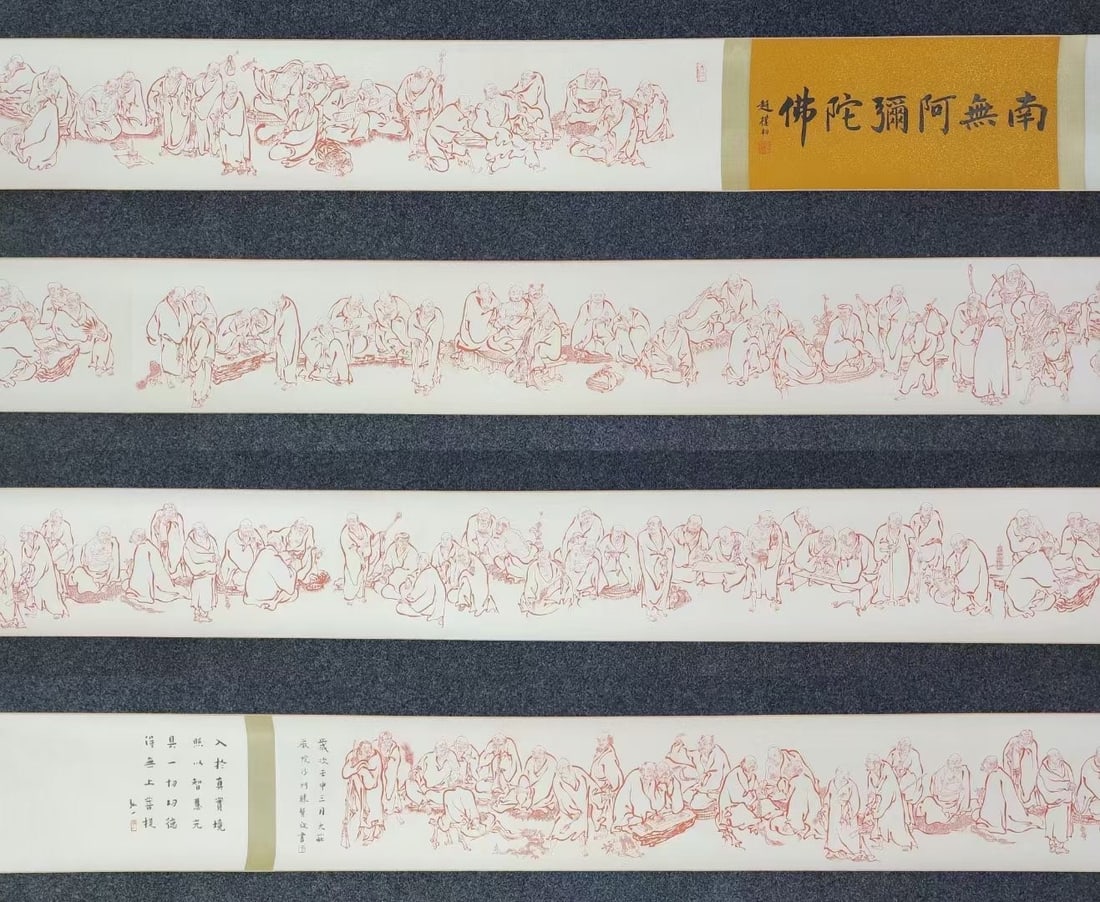 南無阿彌陀佛
趙樸初
歲次壬申三月大莊
入於真實境
照以智慧光
具一切功德
得無上菩提
弘一